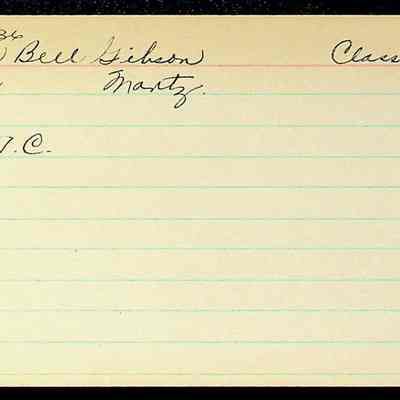 36
Bell Gibson Class
Martz.
T.C.